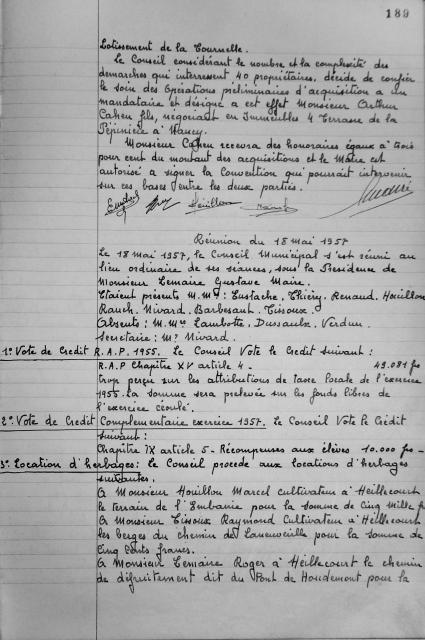 189
Lotissement de la Tournelle.
Le Conseil considérant le nombre et la complexité des
demarches qui interressent 40 propriétaires, décide de confier
le soin des Opérations preliminaires d'acquisition a un
mandataire et désigne a cet effet Monsieur Arthur
Cahen fils, negociant en Immeubles 4 Terrasse de la
Pépinière à Nancy.
Monsieur Cahen recevra des honoraires égaux à trois
pour cent du montant des acquisitions et le Maire est
autorisé a signer la Convention qui pourrait intervenir
sur ces bases entre les deux parties.
Réunion du 18 mai 1957
Le 18 mai 1957, le Conseil Municipal s'est réuni au
lieu ordinaire de ses séances, sous la Presidence de
Monsieur : Lemaire Gustave Maire.
Etaient présents M.M. : Eustache, Thiéry. Renaud. Houillon
Rauch. Nivard. Barbesant. Tisoux.
Absents : M.Ms Lambotte, Dussaulx. Verdun.
Secretaire : Mr Nivard.
1° Vote de Credit R.A.P. 1955. Le Conseil Vote le Credit suivant :
R.A.P Chapitre XV article 4 - 49.081 frs
trop perçu sur les attributions de taxe locale de l'exercice
1955. La somme sera prelevée sur les fonds libres de
l'exercice écoulé.
2° Vote de Credit Complementaire exercice 1957. Le Conseil Vote le Crédit
suivant :
Chapitre IX article 5 - Récompenses aux élèves 10.000 frs -
3° Location d'herbages : Le Conseil procede aux locations d'herbages
suivantes.
A Monsieur Houillon Marcel cultivateur à Heillecourt
le terrain de l'Embanie pour la somme de Cinq Mille f
A Monsieur Tisoux Raymond Cultivateur à Heillecourt
les berges du chemin de Laneuveville pour la somme de
Cinq Cents francs.
A Monsieur Lemaire Roger à Heillecourt le chemin
de défruitement dit du Pont de Houdemont pour la